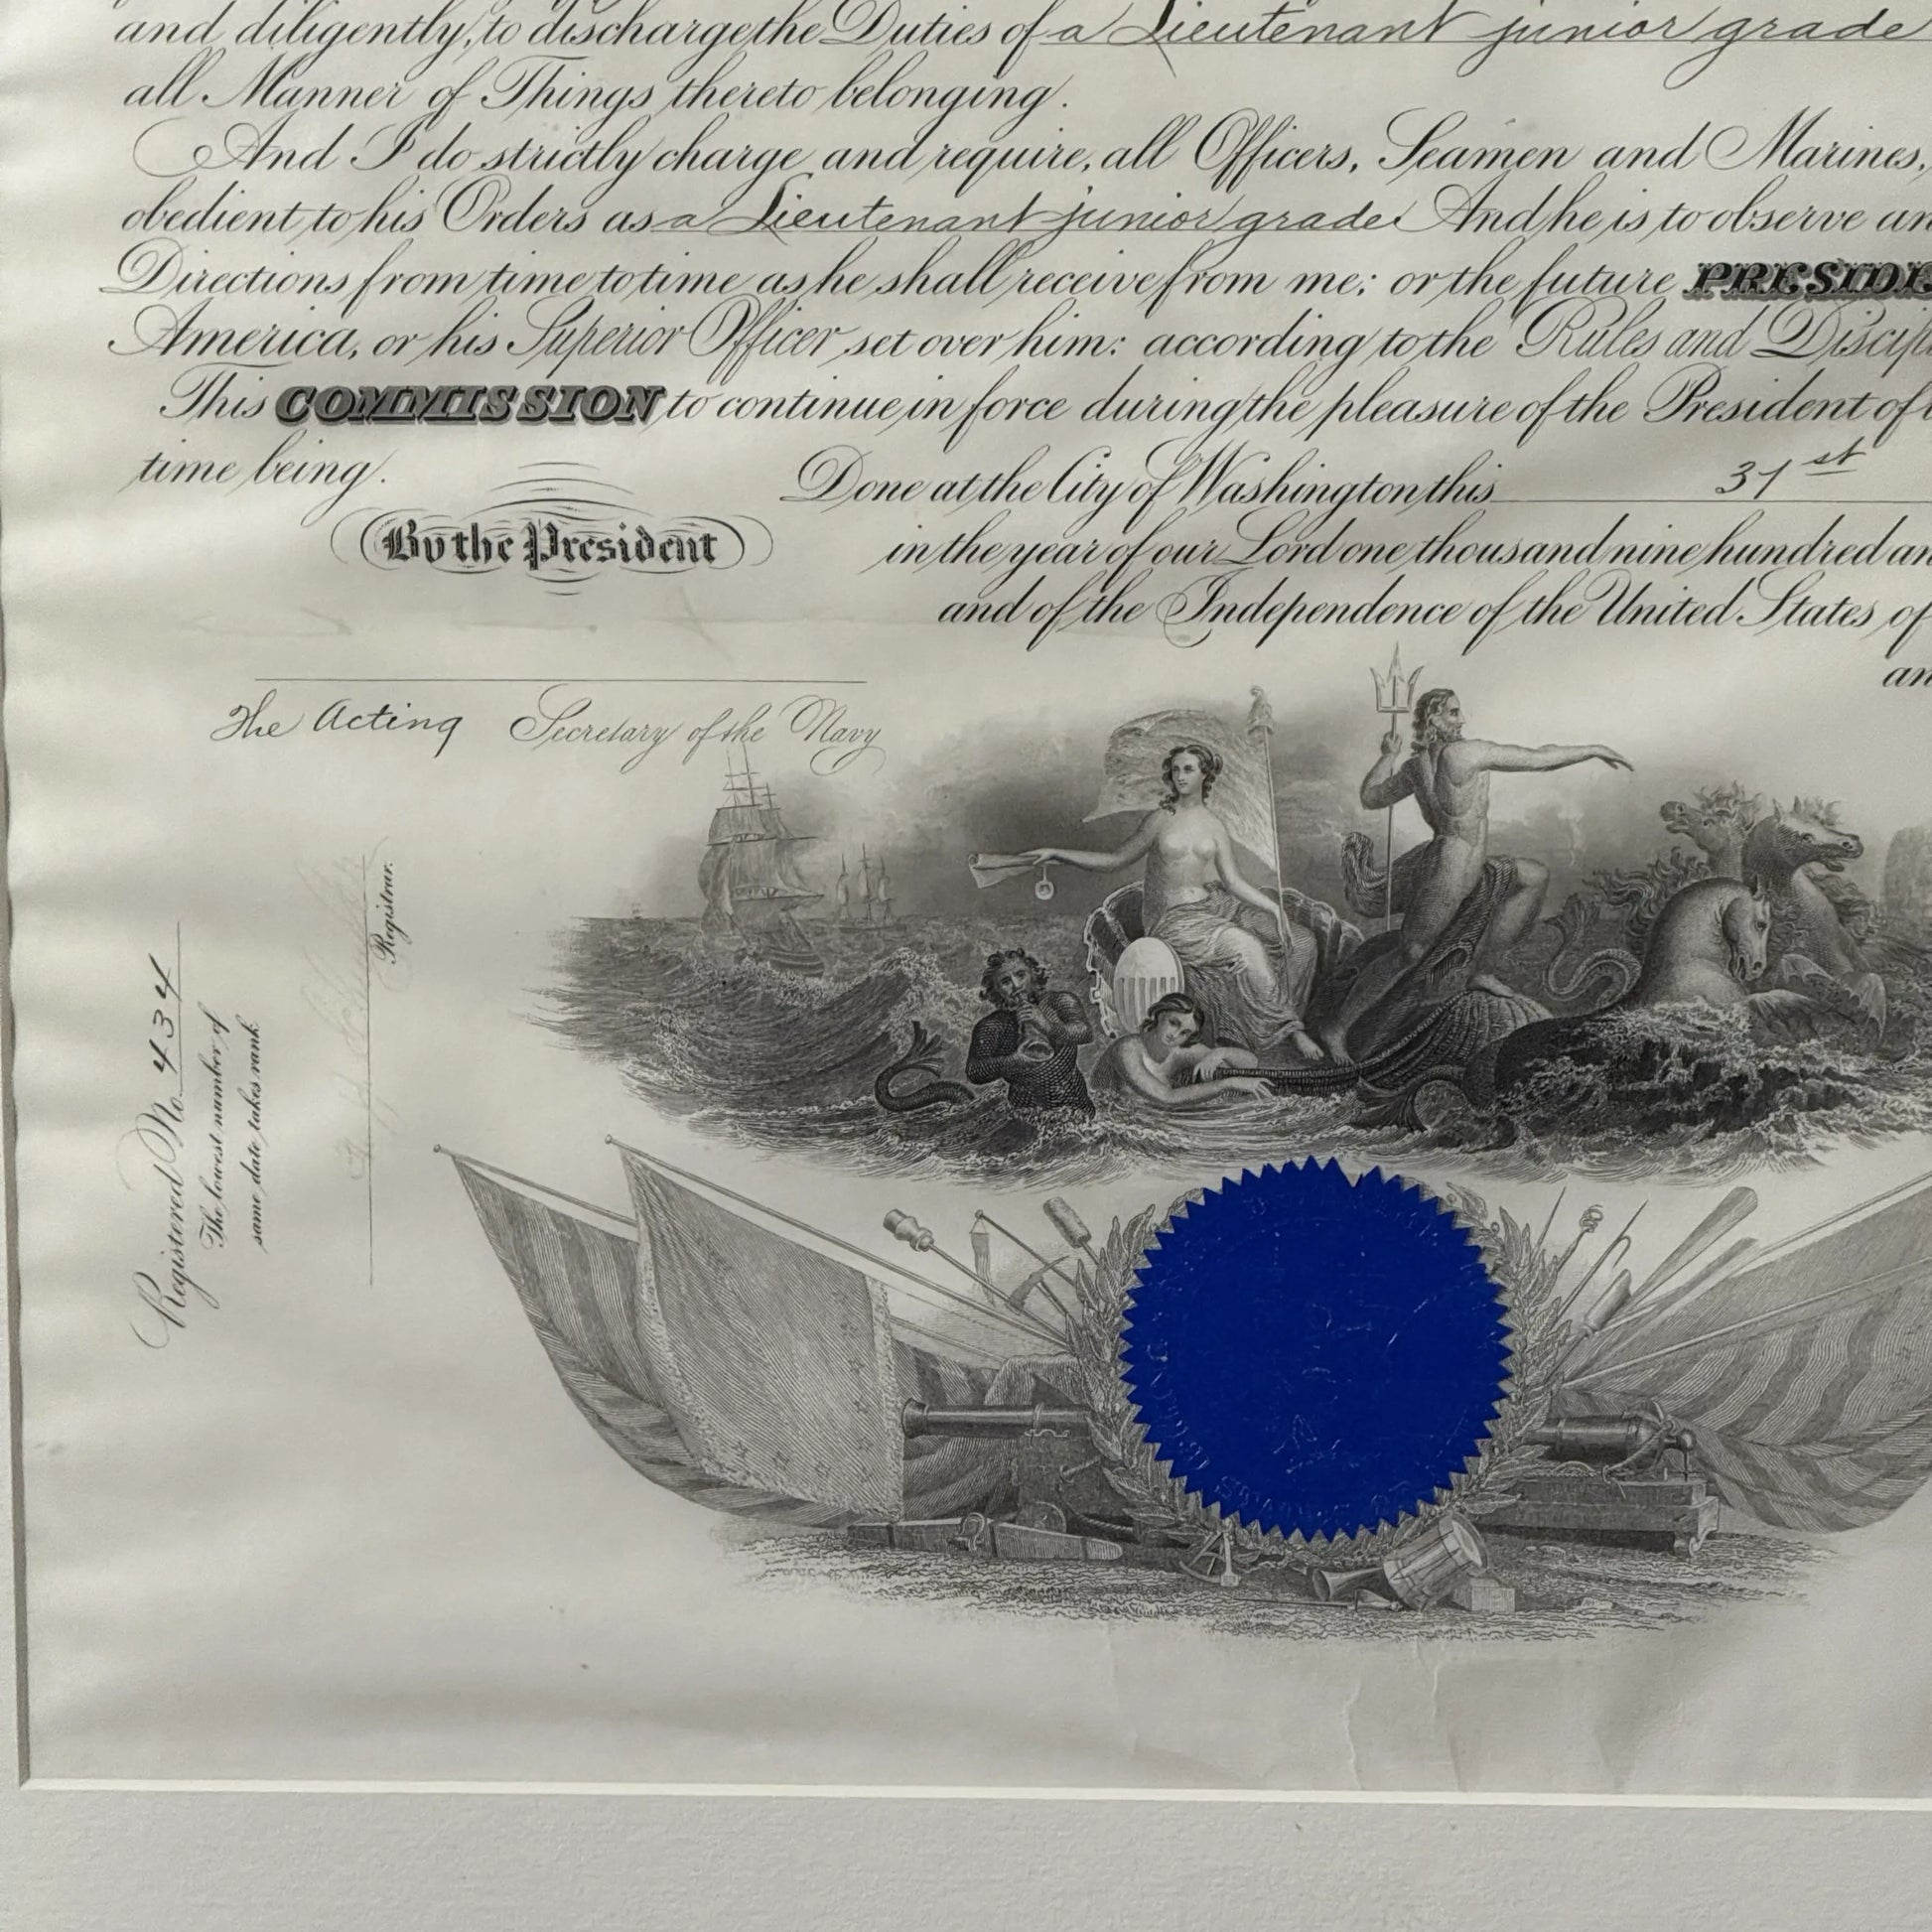 and diligently, to discharge the Duties of a Lieutenant junior grade
all Manner of Things thereto belonging.
And I do strictly charge and require, all Officers, Seamen and Marines,
obedient to his Orders as a Lieutenant junior grade And he is to observe an
Directions from time to time as he shall receive from me; or the future PRESIDE
America, or his Superior Officer set over him: according to the Rules and Discipl
This COMMISSION to continue in force during the pleasure of the President of
time being.
Done at the City of Washington this 31st
By the President
in the year of our Lord one thousand nine hundred an
and of the Independence of the United States of
an
The Acting Secretary of the Navy
Registrar.
Registered No. 434
The lowest number of
same date takes rank